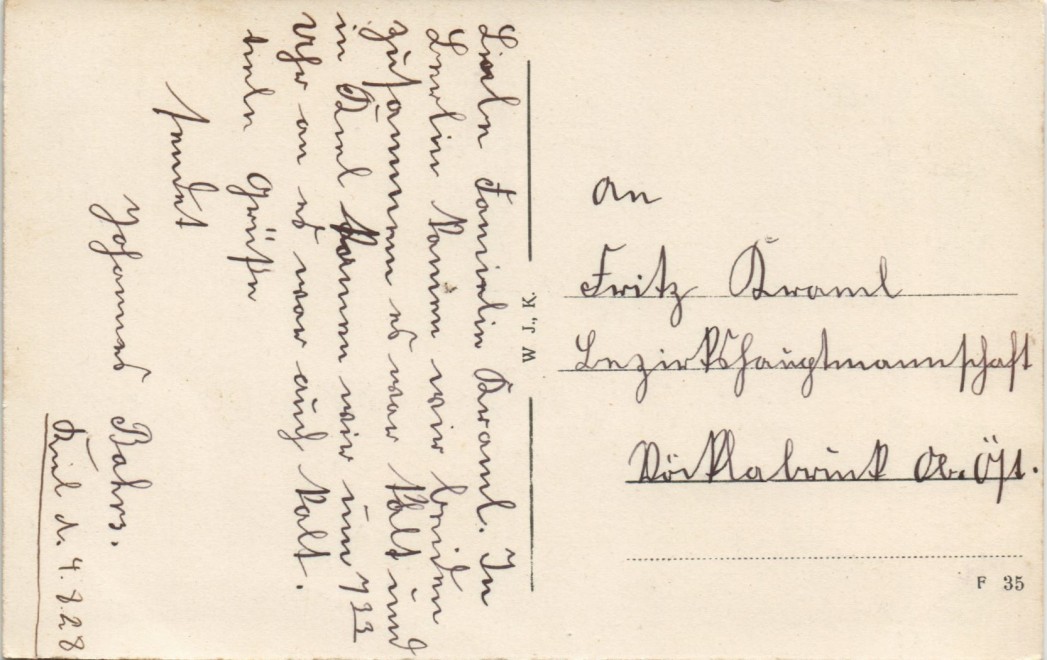 Liebe Familie Kraml. In
Berlin kamen wir beiden
zusammen es war kalt und
in Kiel kamen wir um 7 33
Uhr an es war auch kalt.
viele Grüße
sendet
Johannes Bahrs.
Kiel d. 4.8.28
W. J., K.
An
Fritz Kraml
Bezirkshauptmannschaft
Vöcklabruck Ob. Öst.
F 35